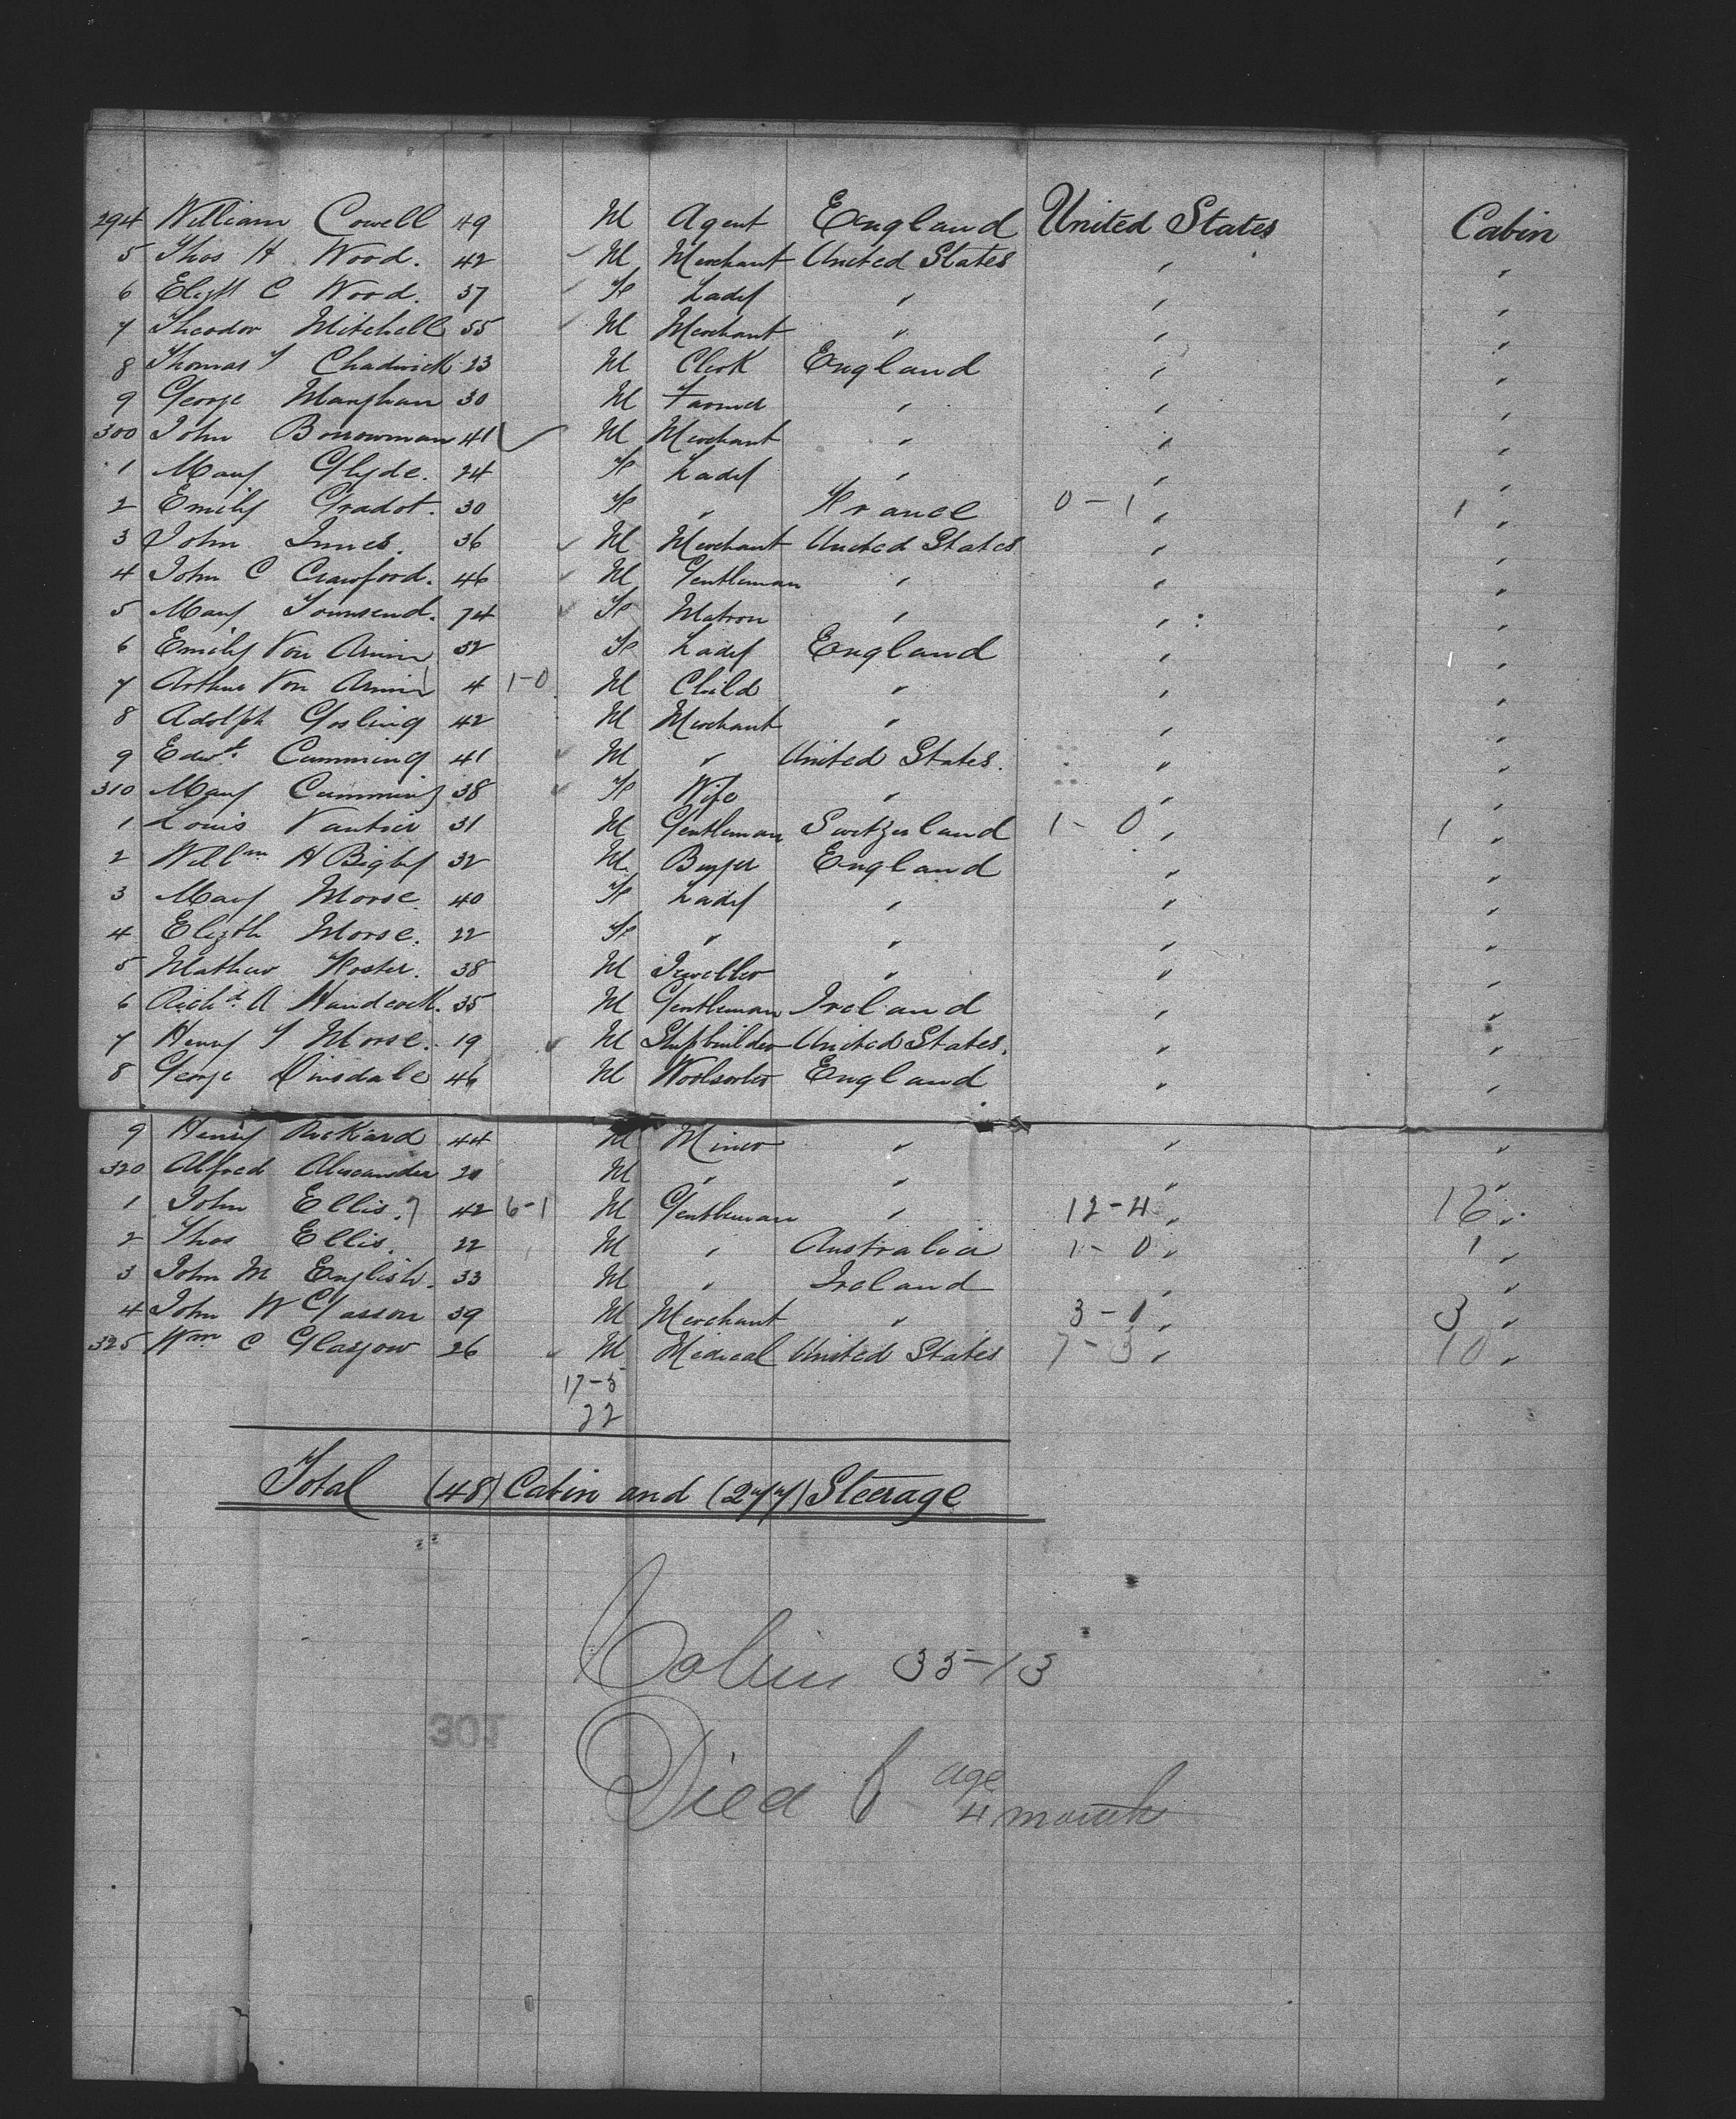 294 William Cowell 49 M Agent England United States Cabin
5 Thos H Wood. 42 M Merchant United States " "
6 Elizth C Wood. 37 F Lady " " "
7 Theodor Mitchell 55 M Merchant " " "
8 Thomas T Chadwick 23 M Clerk England " "
9 George Manghan 30 M Farmer " " "
300 John Borrowman 41 M Merchant " " "
1 Mary Clyde. 24 F Lady " " "
2 Emily Gradot. 30 F " France 0-1 " 1 "
3 John Innes. 36 M Merchant United States " "
4 John C Crawford. 46 M Gentleman " " "
5 Mary Townsend. 74 F Matron " " "
6 Emily Von Arnim 32 F Lady England " "
7 Arthur Von Arnim 4 1-0 M Child " " "
8 Adolph Gosling 42 M Merchant " " "
9 Edwd. Cumming 41 M " United States. " "
310 Mary Cumming 38 F Wife " " "
1 Louis Vautier 31 M Gentleman Switzerland 1-0 " 1 "
2 Willm H Bigby 32 M. Buyer England " "
3 Mary Morse. 40 F Lady " " "
4 Elizth Morse. 22 F " " " "
5 Mathew Foster. 38 M Jeweller " " "
6 Richd. A Handcock. 35 M Gentleman Ireland " "
7 Henry T Morse. 19 M Shipbuilder United States. " "
8 George Dinsdale 46 M Woolsorter England " "
9 Henry Rickard 44 M Miner " " "
320 Alfred Alexander 20 M " " " "
1 John Ellis. 7 42 6-1 M Gentleman " 12-4 " 16 "
2 Thos Ellis. 22 M " Australia 1-0 " 1 "
3 John M English. 33 M " Ireland " "
4 John W Glasson 39 M Merchant " 3-0 " 3 "
325 Wm. C Glasgow 26 M Medical United States 7-3 " 10 "
17-5
22
Total (48) Cabin and (277) Steerage
Cabin 35-13
301
Died f age
4 month